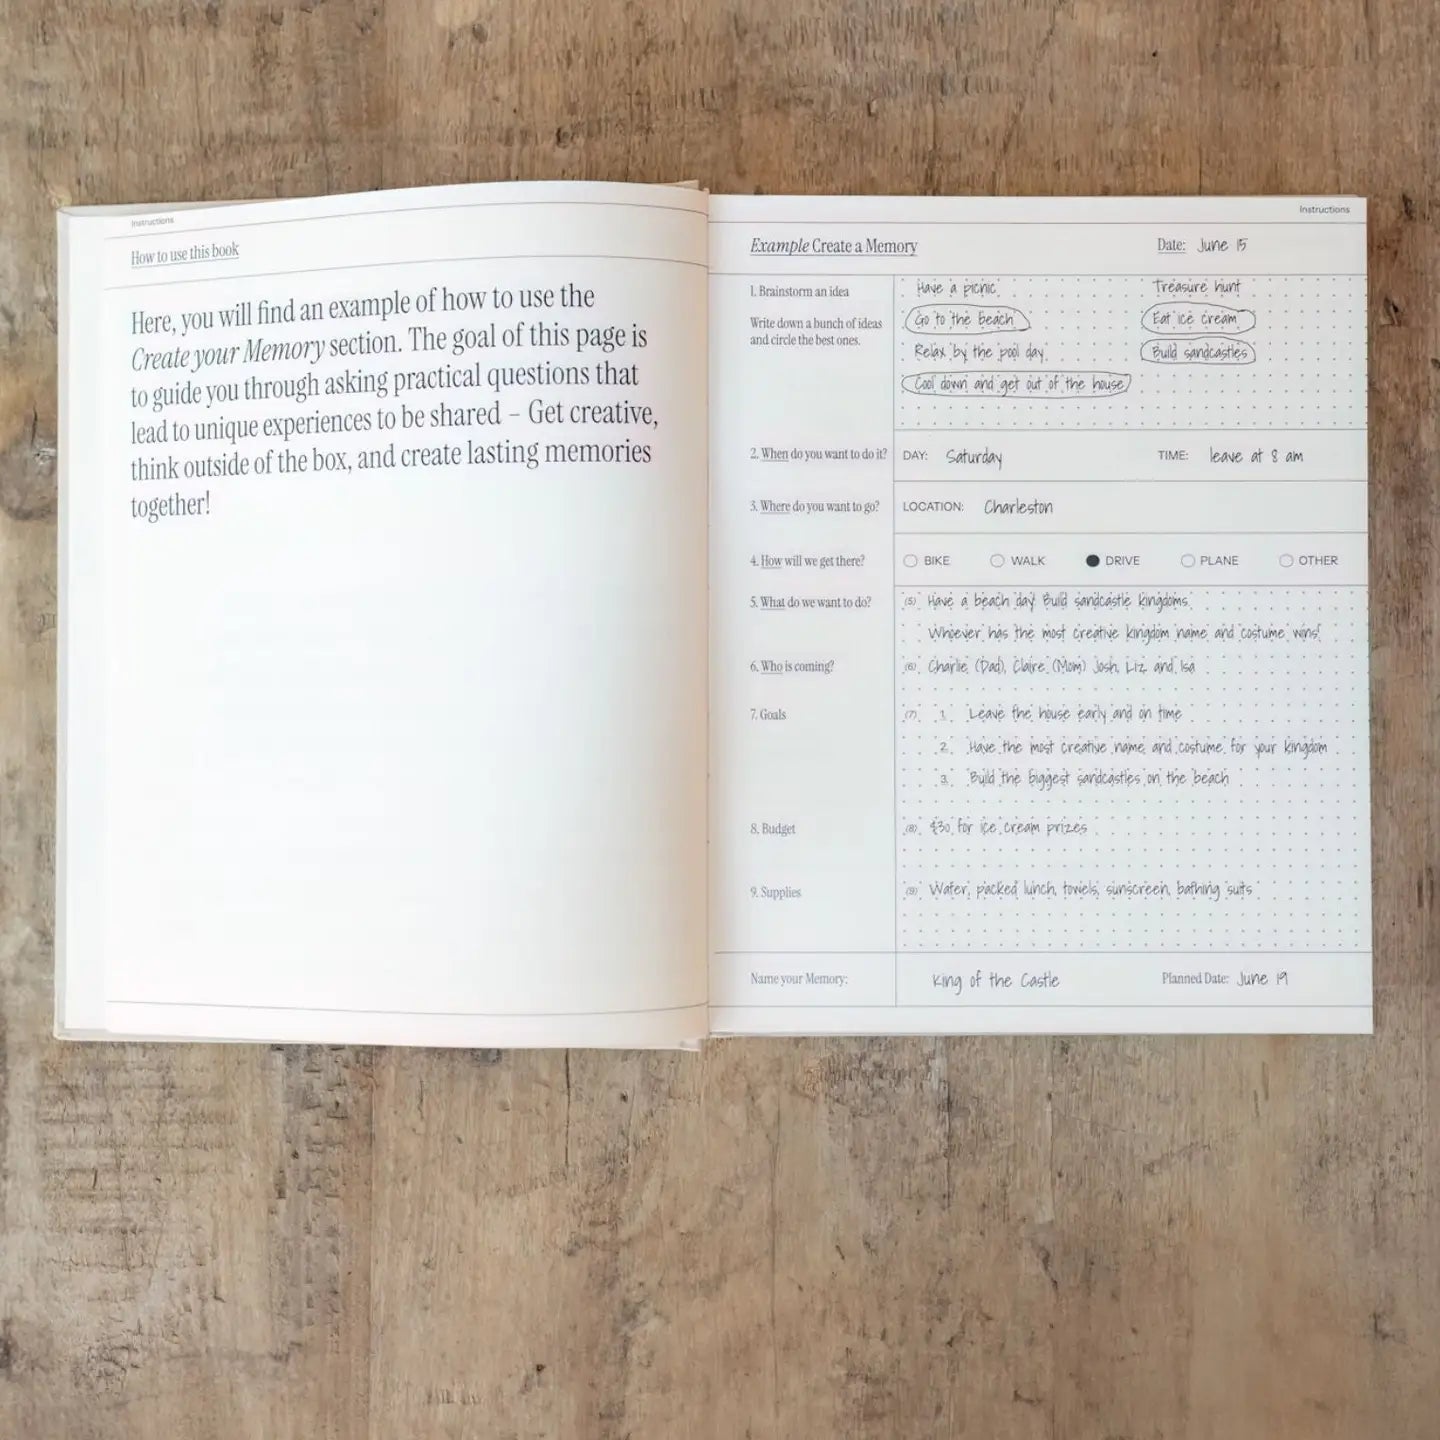 Instructions
How to use this book
Here, you will find an example of how to use the
Create your Memory section. The goal of this page is
to guide you through asking practical questions that
lead to unique experiences to be shared – Get creative,
think outside of the box, and create lasting memories
together!
Instructions
Example Create a Memory
Date: June 15
1. Brainstorm an idea
Write down a bunch of ideas
and circle the best ones.
Have a picnic
Go to the beach
Relax by the pool day
Cool down and get out of the house
Treasure hunt
Eat ice cream
Build sandcastles
2. When do you want to do it?
DAY: Saturday
TIME: leave at 8 am
3. Where do you want to go?
LOCATION: Charleston
4. How will we get there?
BIKE WALK DRIVE PLANE OTHER
5. What do we want to do?
(5) Have a beach day Build sandcastle kingdoms
Whoever has the most creative kingdom name and costume wins!
6. Who is coming?
(6) Charlie (Dad), Claire (Mom) Josh, Liz and Isa
7. Goals
(7) 1. Leave the house early and on time
2. Have the most creative name and costume for your kingdom
3. Build the biggest sandcastles on the beach
8. Budget
(8) $30 for ice cream prizes
9. Supplies
(9) Water, packed lunch, towels, sunscreen, bathing suits
Name your Memory: King of the Castle
Planned Date: June 19